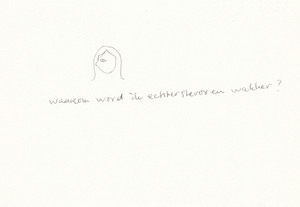 waarom word ik achterstevoren wakker?